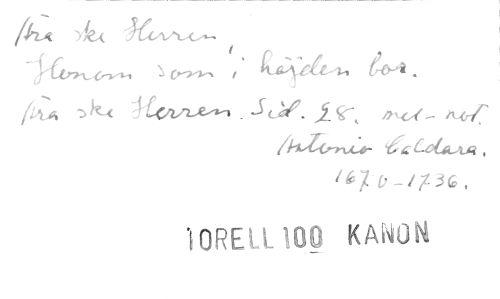 Ära ske Herren,
Honom som i höjden bor.
Ära ske Herren. Sid. 28. mel-not.
Antonio Caldara.
1670-1736.
TORELL 100 KANON